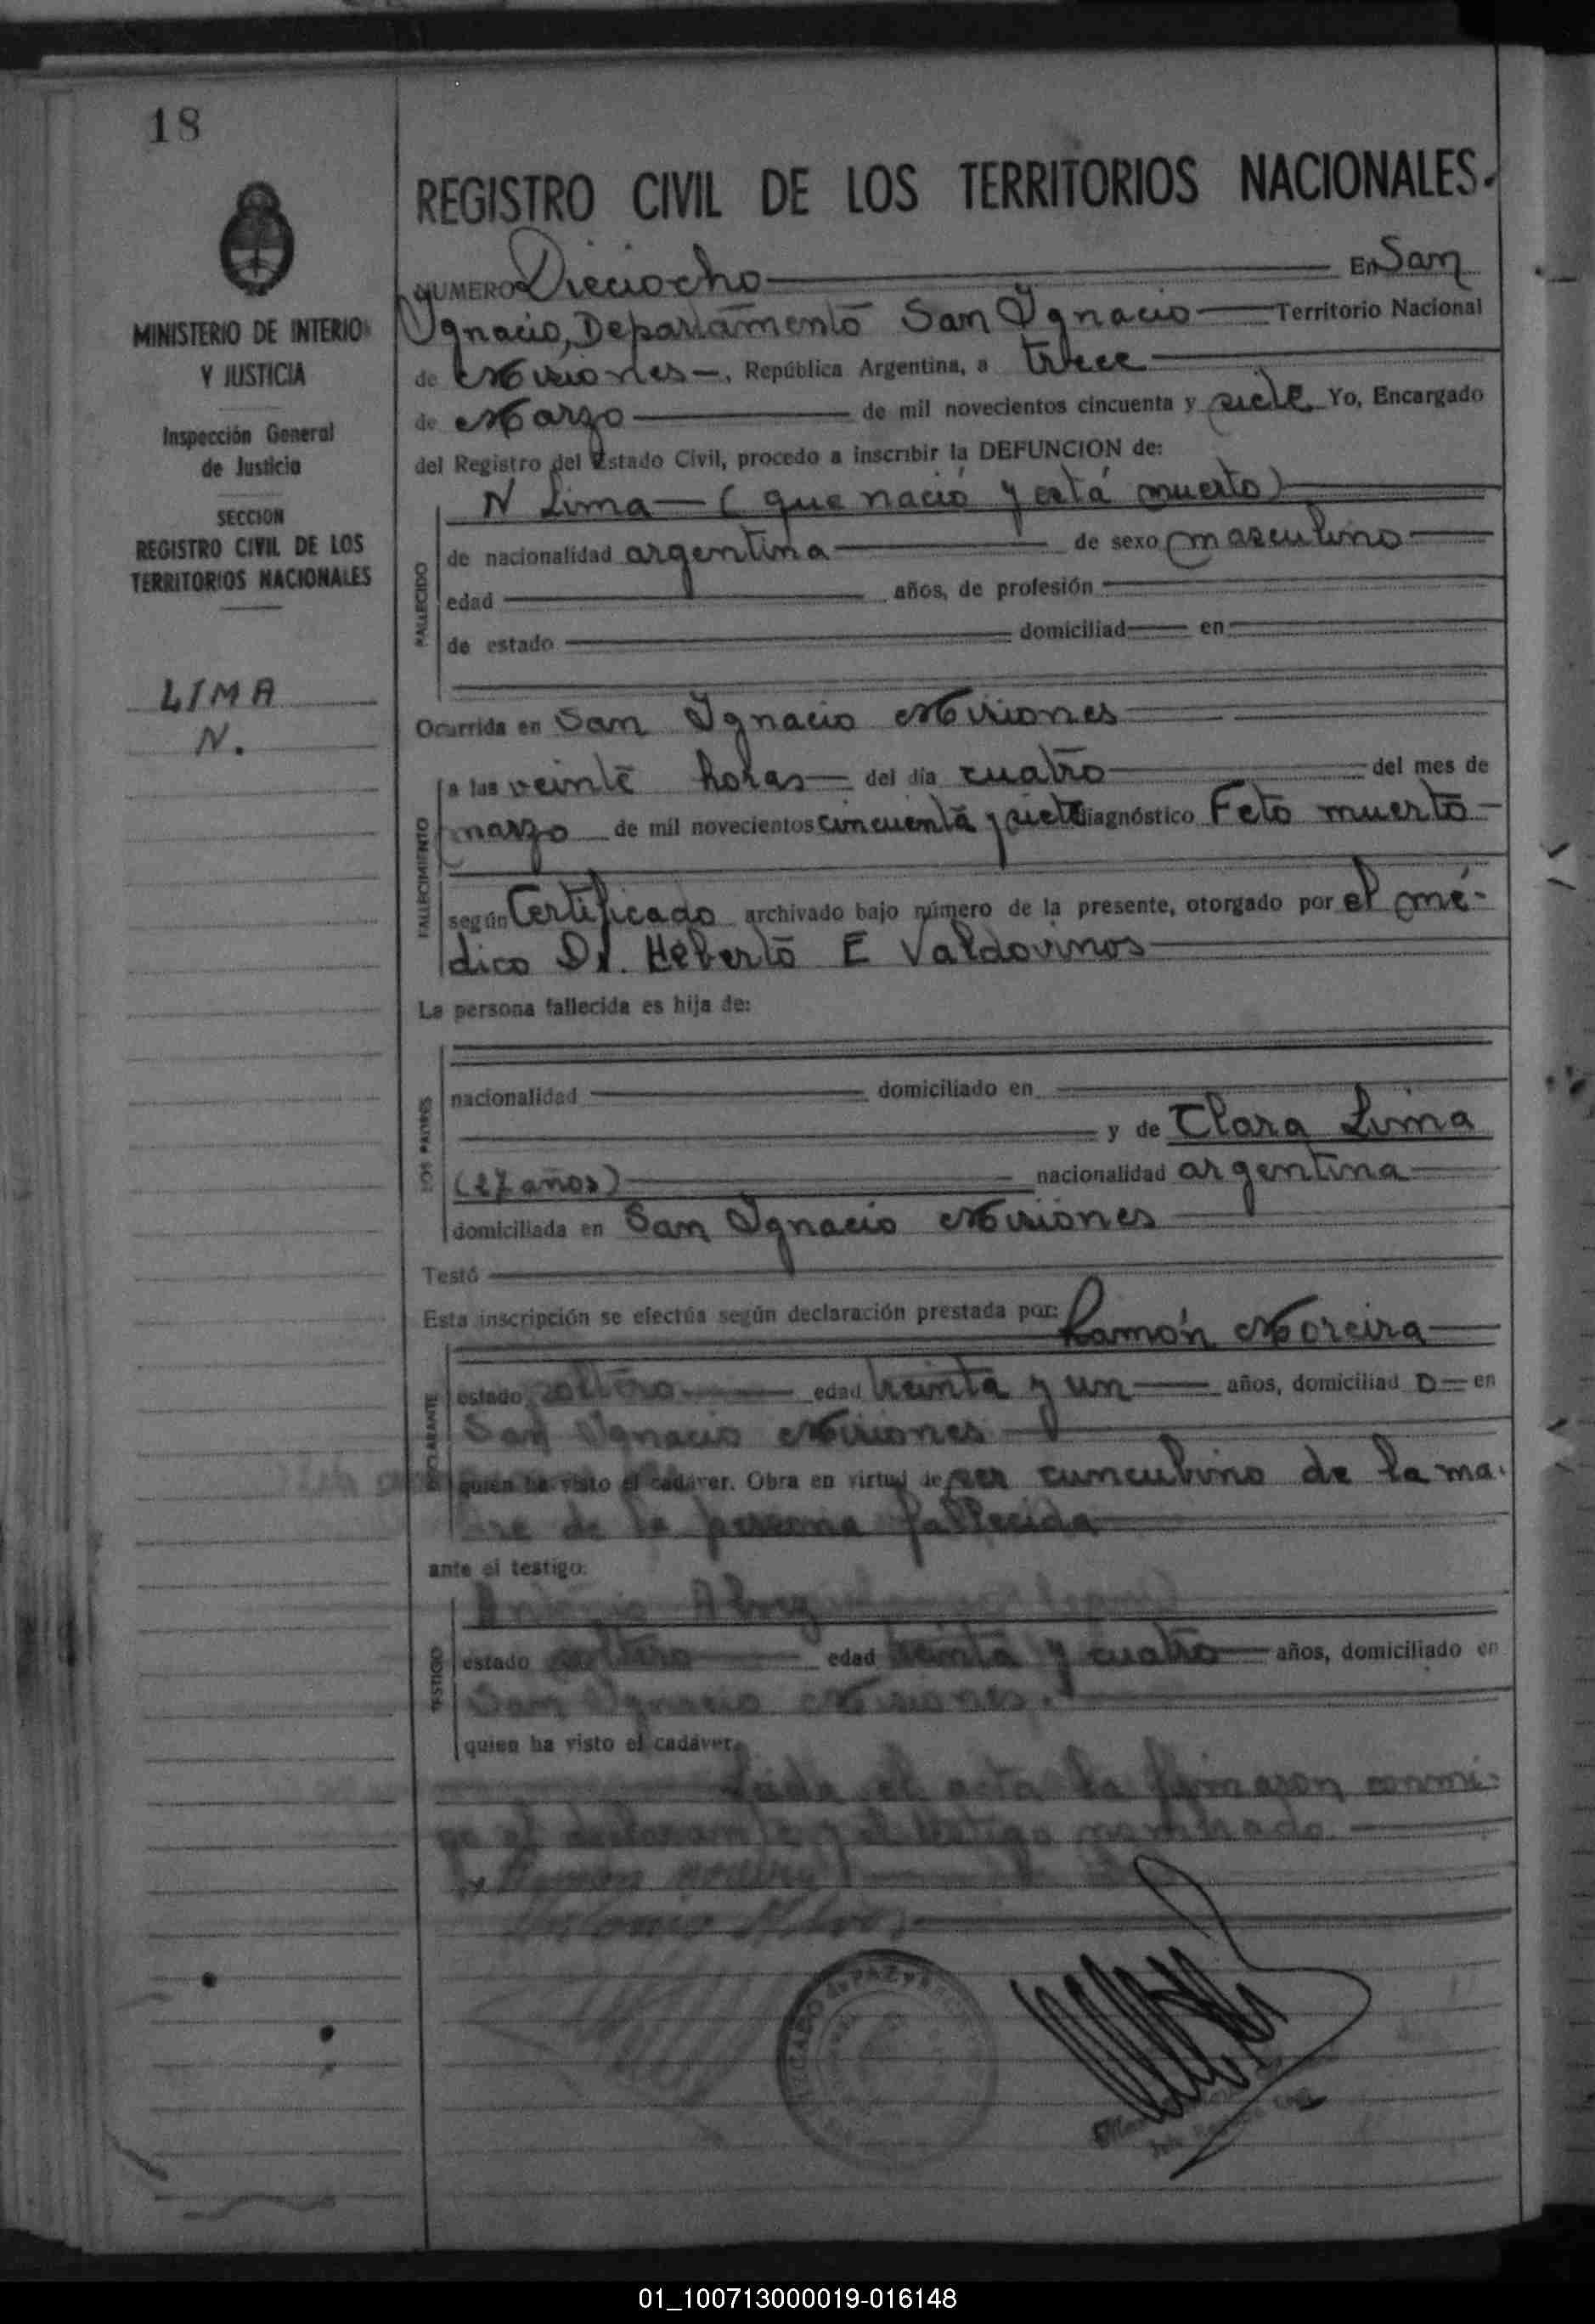 18
MINISTERIO DE INTERIOR
Y JUSTICIA
Inspección General
de Justicia
SECCION
REGISTRO CIVIL DE LOS
TERRITORIOS NACIONALES
LIMA
N.
REGISTRO CIVIL DE LOS TERRITORIOS NACIONALES.
NUMERO Dieciocho En San
Ignacio, Departamento San Ignacio Territorio Nacional
de Misiones, República Argentina, a trece
de Marzo de mil novecientos cincuenta y siete Yo, Encargado
del Registro del Estado Civil, procedo a inscribir la DEFUNCION de:
FALLECIDO
N Lima (que nació y está muerto)
de nacionalidad argentina de sexo masculino
edad años, de profesión
de estado domiciliad en
Ocurrida en San Ignacio Misiones
FALLECIMIENTO
a las veinte horas del día cuatro del mes de
marzo de mil novecientos cincuenta y siete diagnóstico Feto muerto
según Certificado archivado bajo número de la presente, otorgado por el mé-
dico Dr. Heberto E Valdovinos
La persona fallecida es hija de:
LOS PADRES
nacionalidad domiciliado en
y de Clara Lima
(27 años) nacionalidad argentina
domiciliada en San Ignacio Misiones
Testó
Esta inscripción se efectúa según declaración prestada por: Ramón Moreira
DECLARANTE
estado soltero edad treinta y un años, domiciliad o en
San Ignacio Misiones
quien ha visto el cadáver. Obra en virtud de ser cuncubino de la ma.
dre de la persona fallecida
ante el testigo:
TESTIGO
Antonio
estado soltero edad treinta y cuatro años, domiciliado en
San Ignacio Misiones.
quien ha visto el cadáver.
Leida el acta la firmaron conmi-
go el declarante y el testigo nombrado.
Ramón
Antonio
JUZGADO de PAZ y
01_100713000019-016148